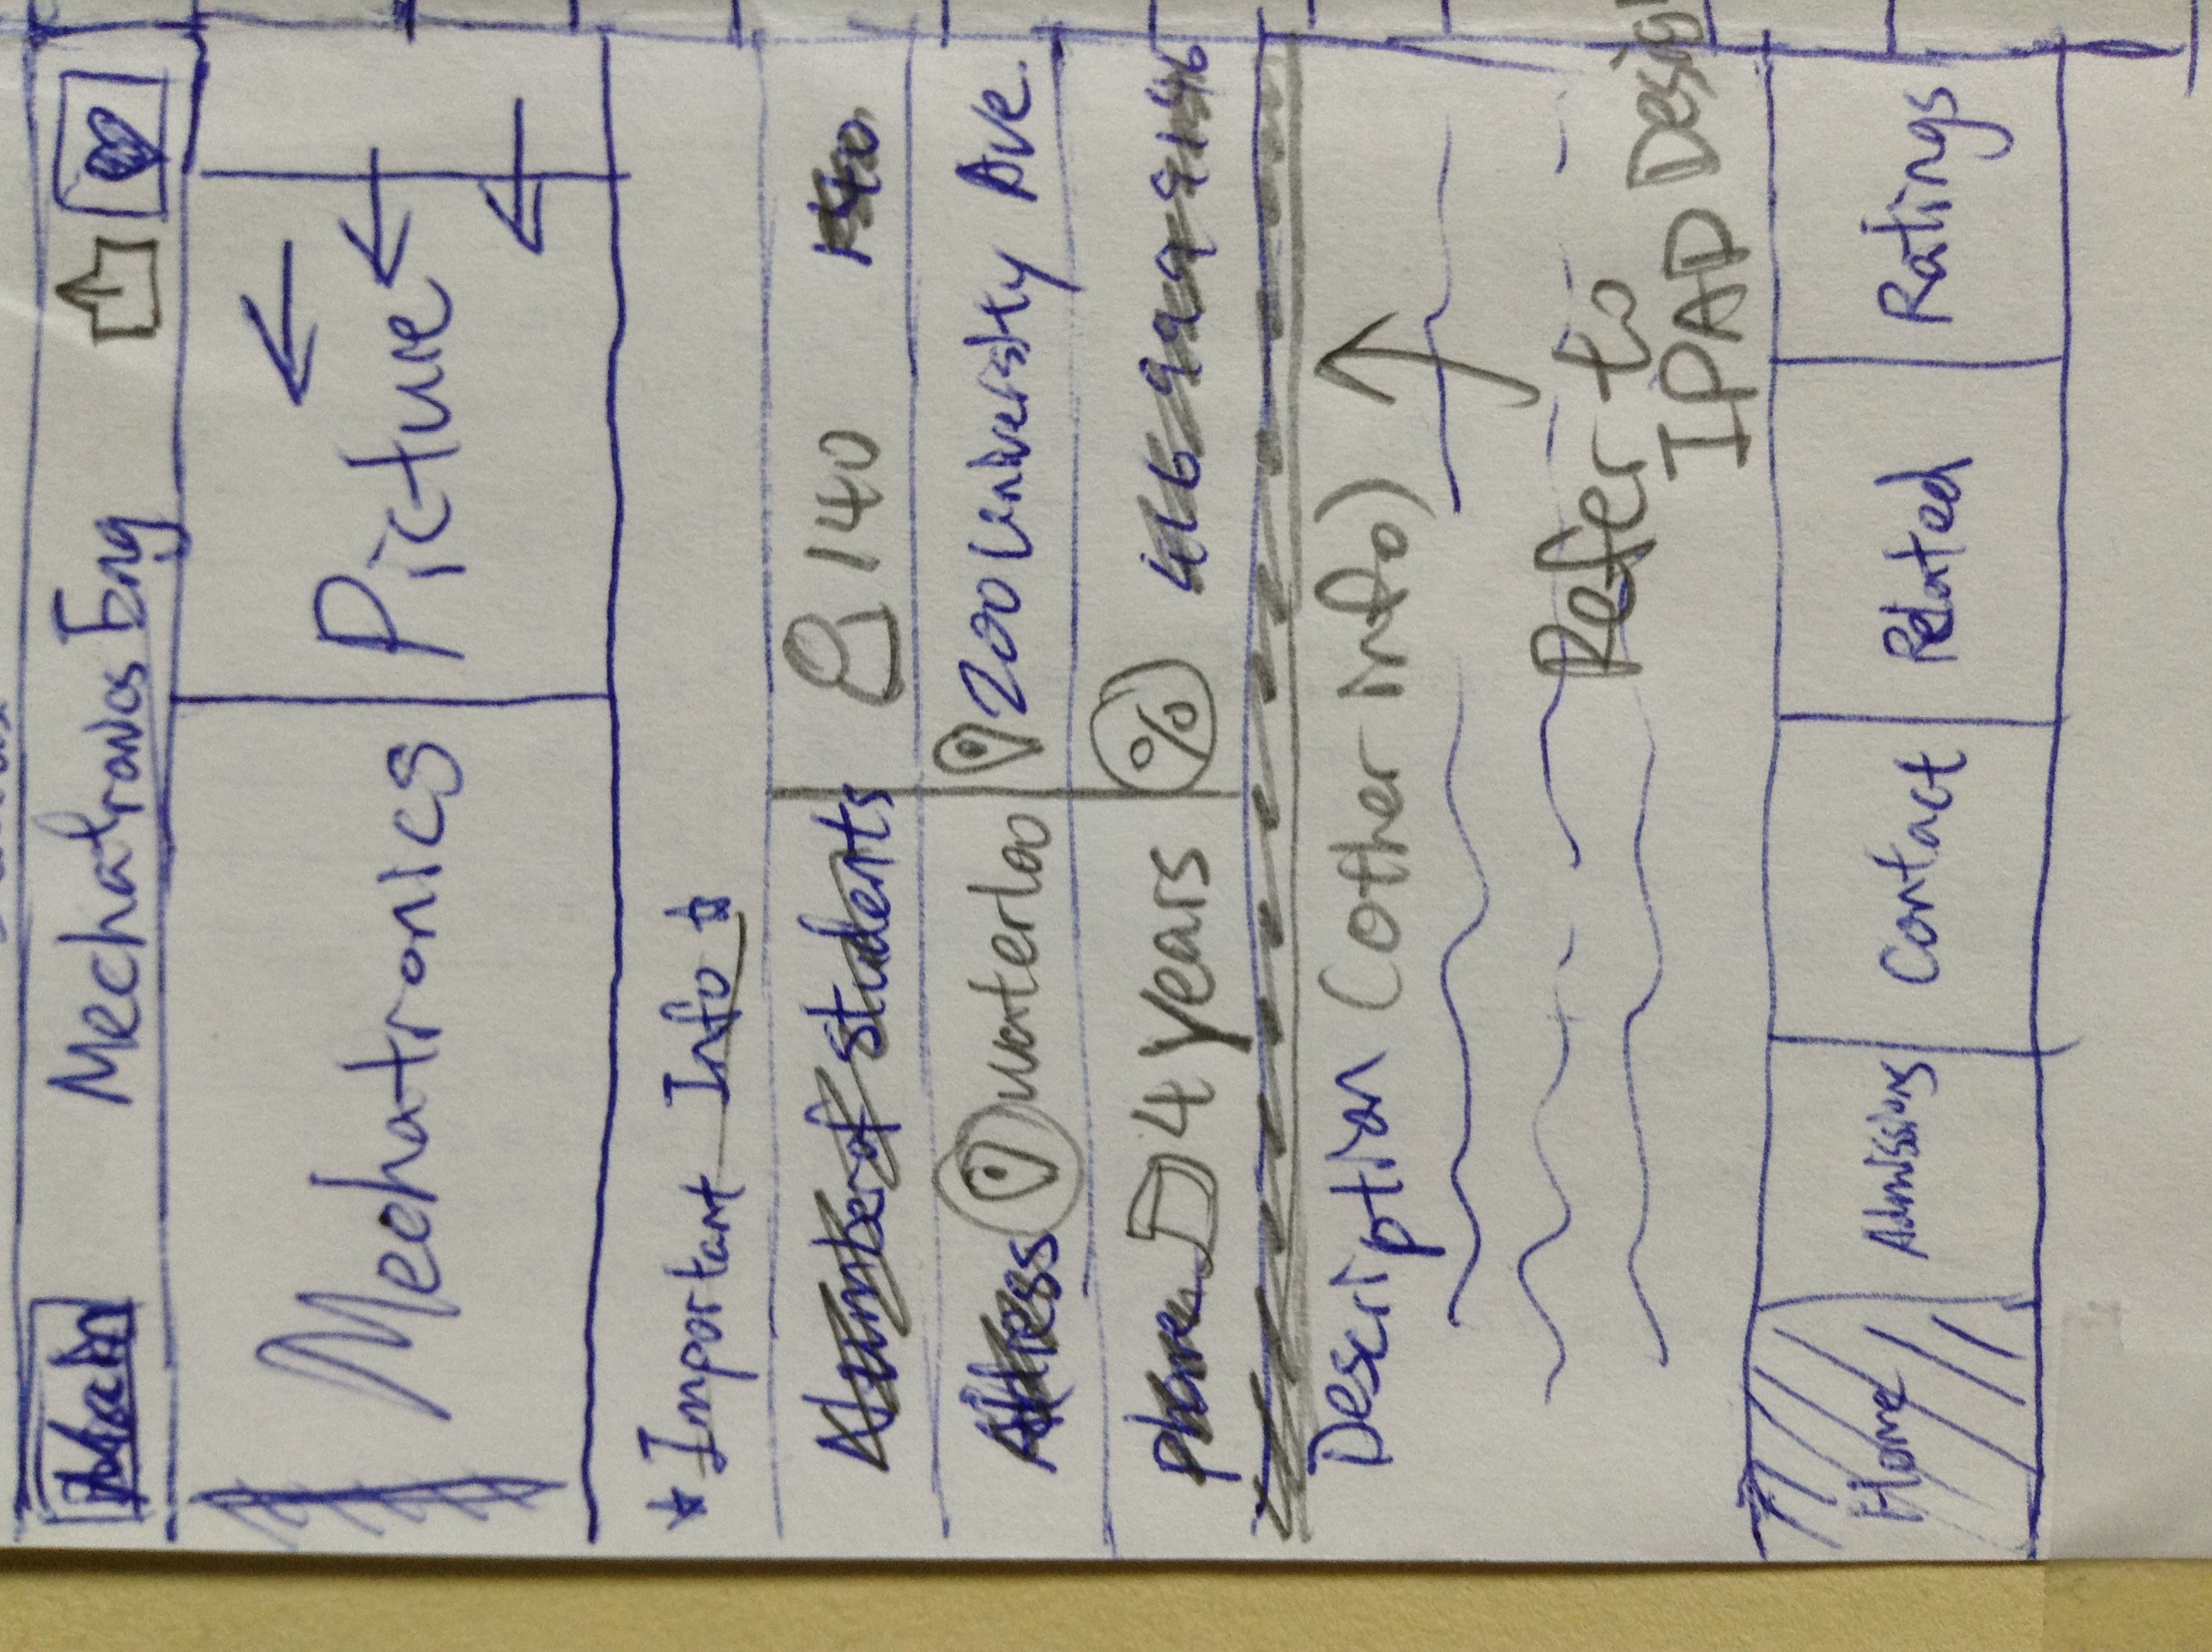 Main
Mechatronics Eng
Mechatronics Picture
Important Info
Number of Students 140 140
Address waterloo 200 University Ave.
phone 4 years % 416 999 9196
Description (other info)
Refer to
IPAD Design
Home Admissions Contact Related Ratings